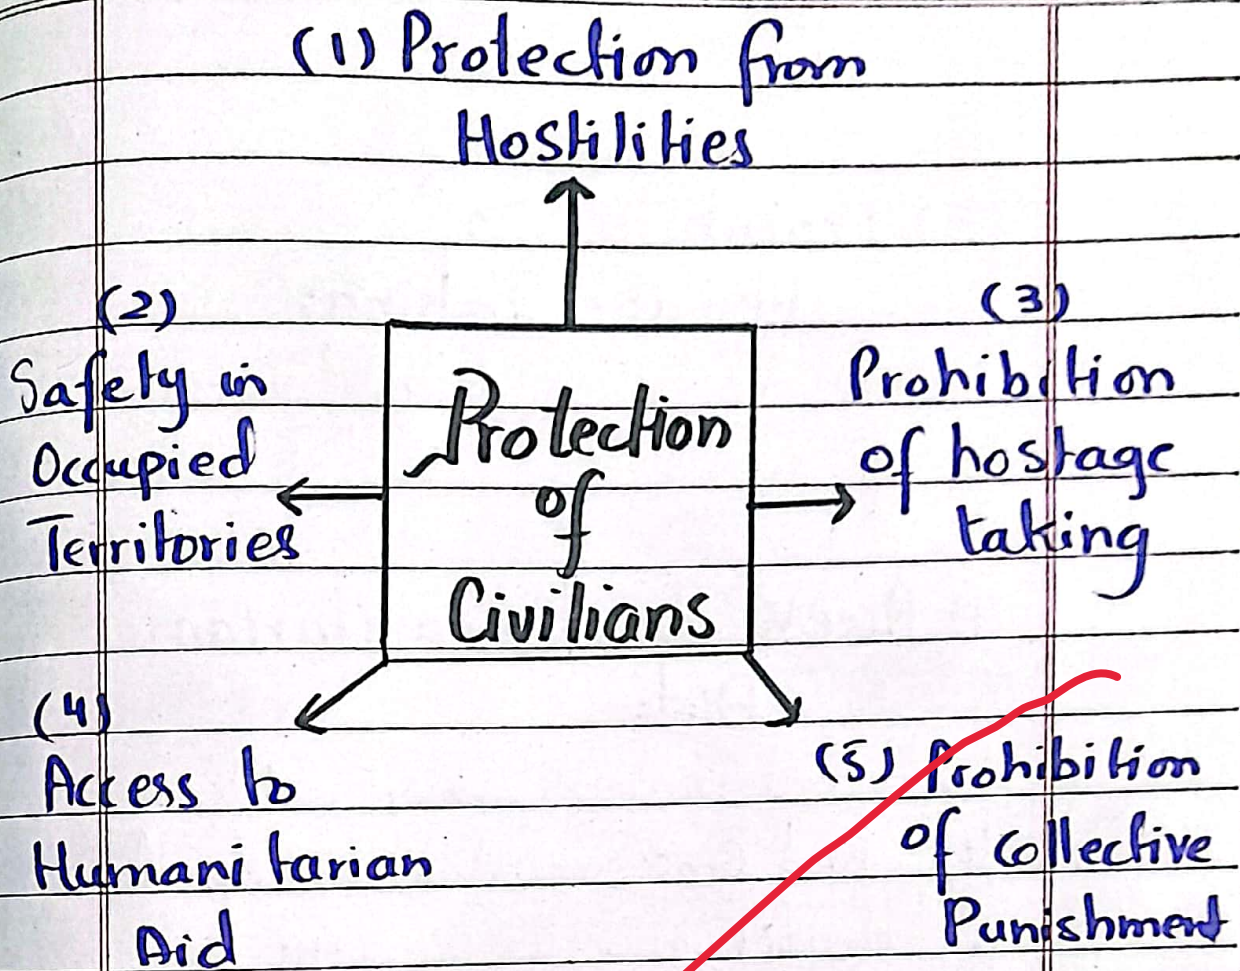 (1) Protection from
Hostilities
(2)
Safety in
Occupied
Territories
(3)
Prohibition
of hostage
taking
Protection
of
Civilians
(4)
Access to
Humanitarian
Aid
(5) Prohibition
of Collective
Punishment